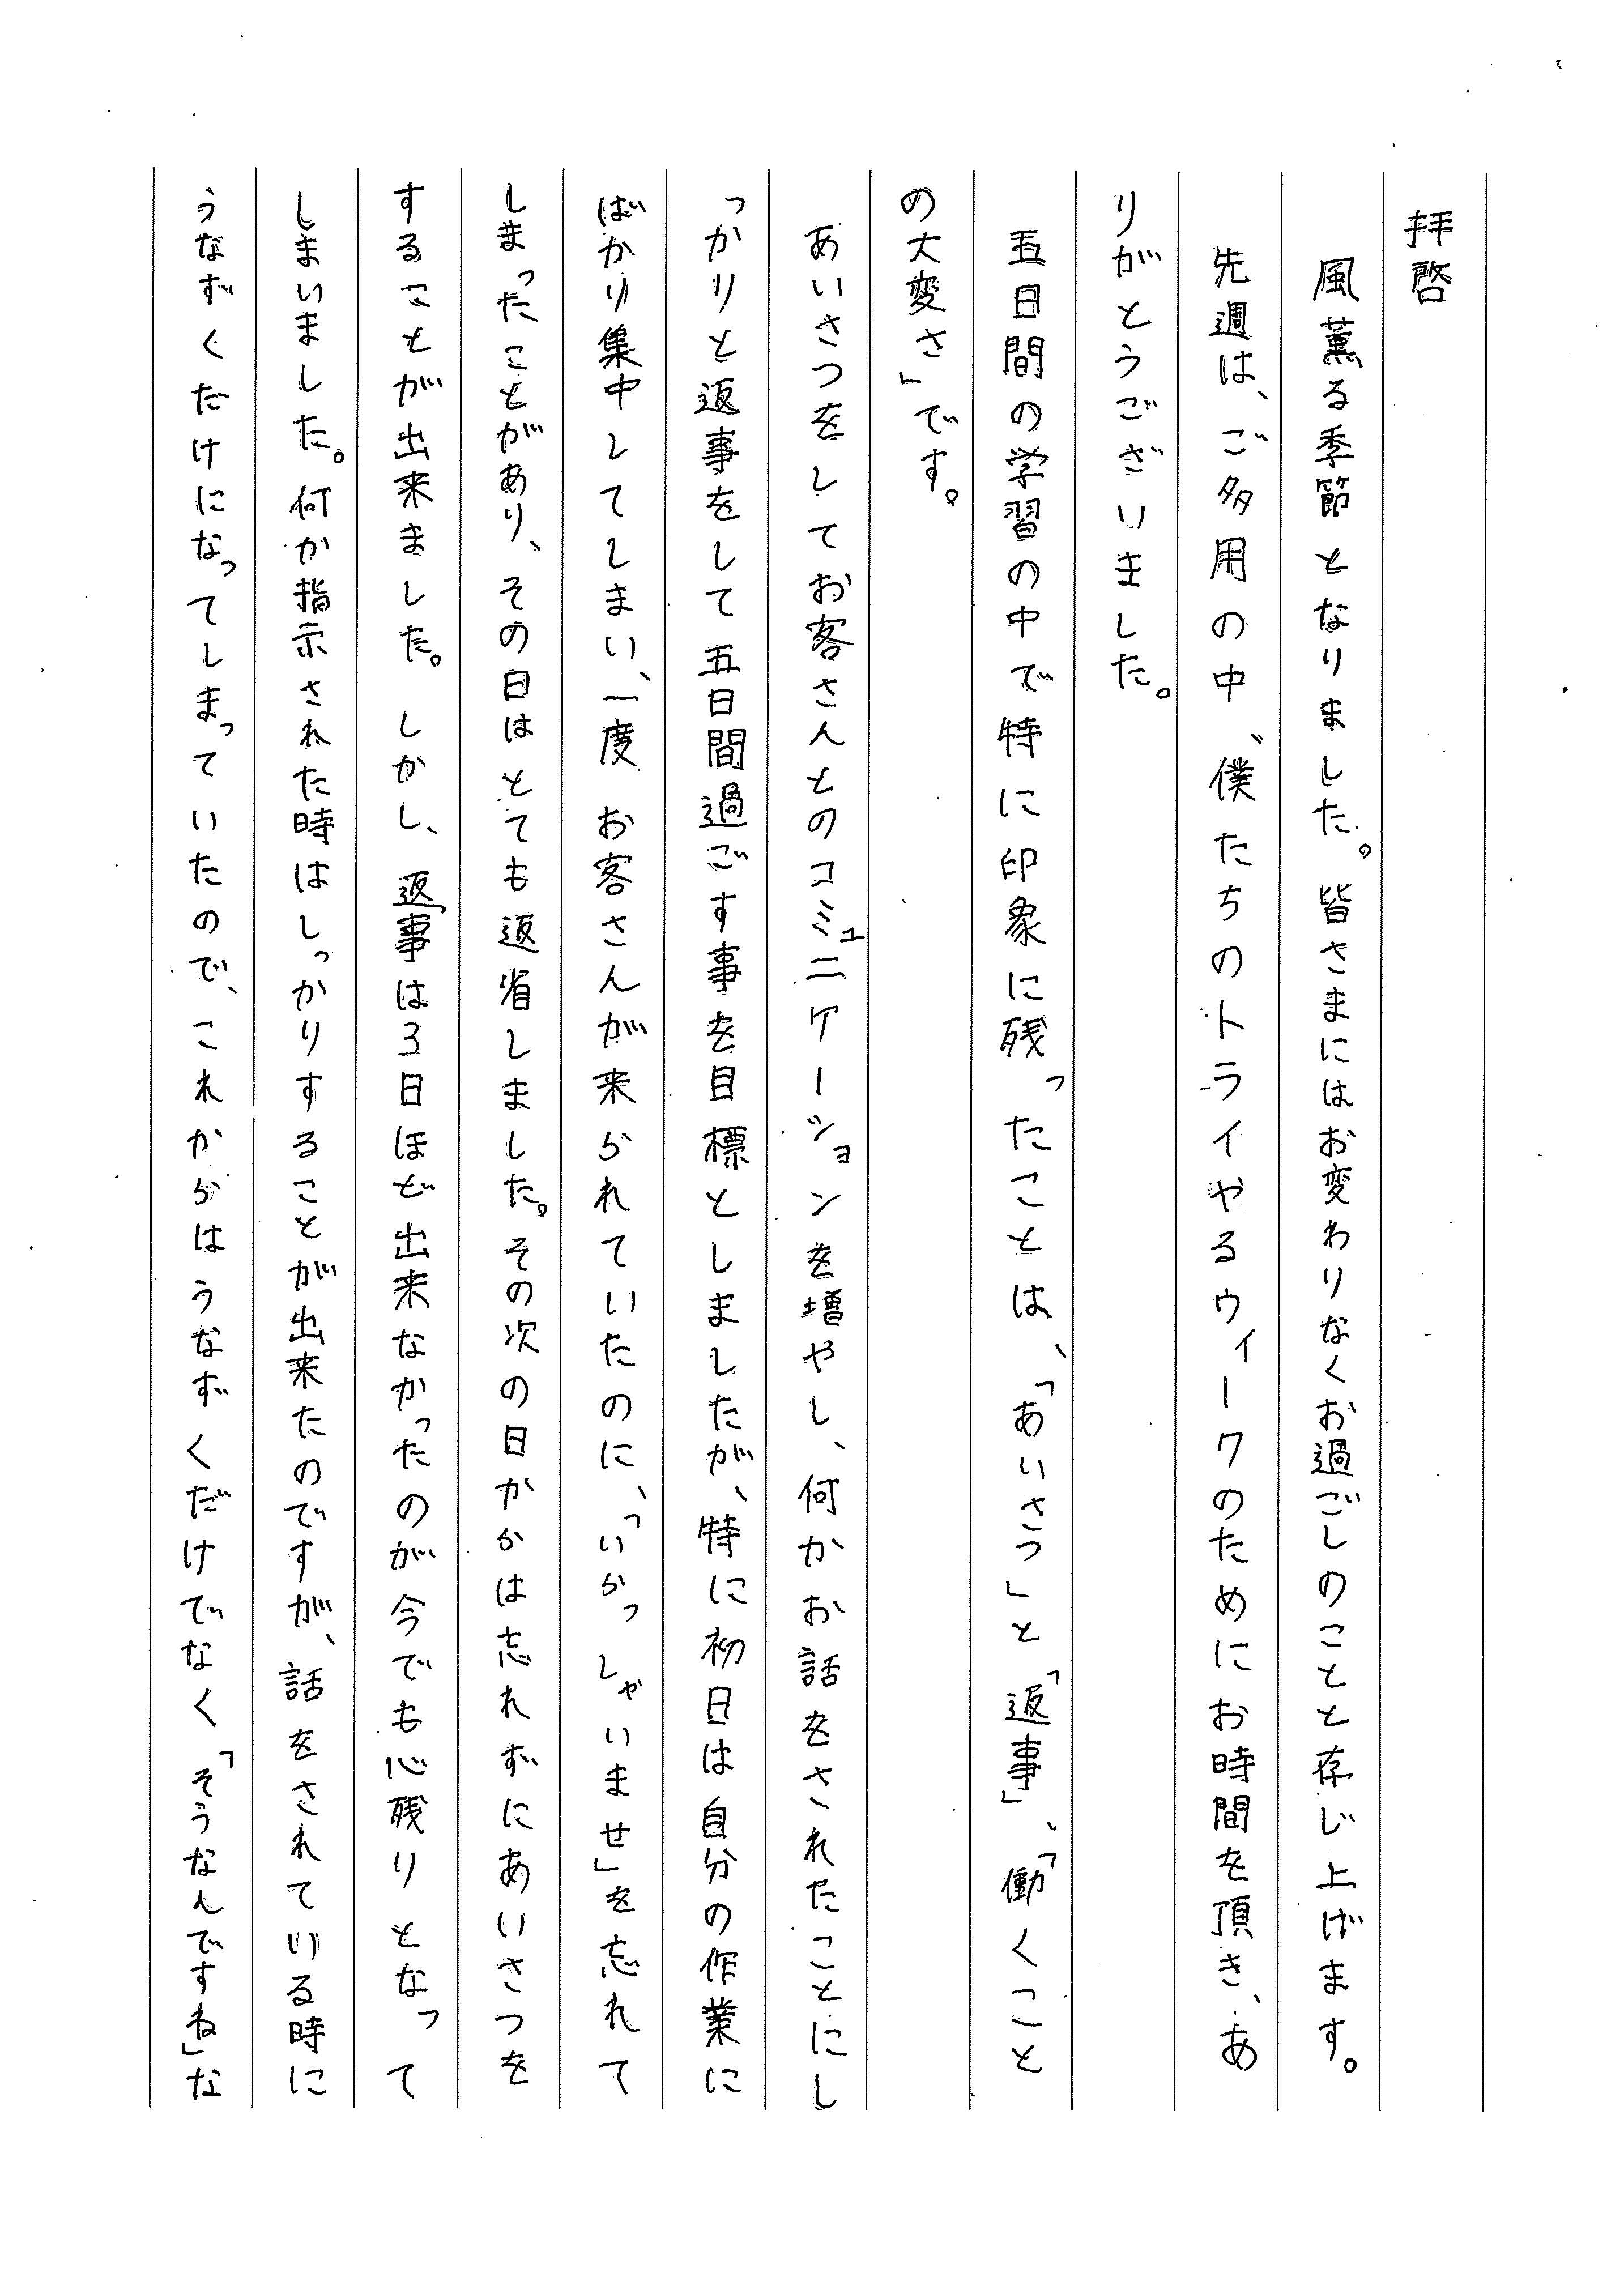 拝啓
風薫る季節となりました。皆さまにはお変わりなくお過ごしのことと存じ上げます。
先週は、ご多用の中、僕たちのトライやるウィークのためにお時間を頂き、あ
りがとうございました。
五日間の学習の中で特に印象に残ったことは、「あいさつ」と「返事」、「働くこと
の大変さ」です。
あいさつをしてお客さんとのコミュニケーションを増やし、何かお話をされたことにし
っかりと返事をして五日間過ごす事を目標としましたが、特に初日は自分の作業に
ばかり集中してしまい、一度お客さんが来られていたのに、「いらっしゃいませ」を忘れて
しまったことがあり、その日はとても返省しました。その次の日からは忘れずにあいさつを
することが出来ました。しかし、返事は3日ほど出来なかったのが今でも心残りとなって
しまいました。何か指示された時はしっかりすることが出来たのですが、話をされている時に
うなずくたけになってしまっていたので、これからはうなずくだけでなく、「そうなんですね」な